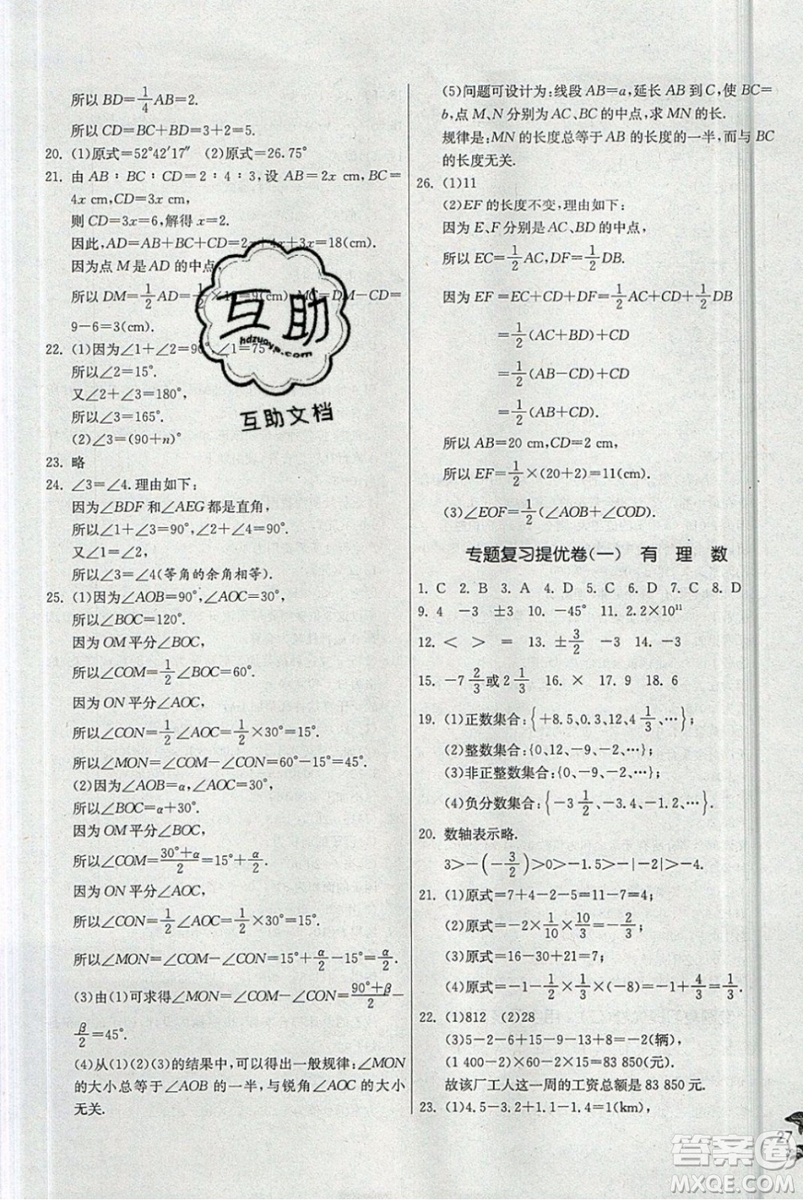 所以 BD=1/4AB=2.
所以 CD=BC+BD=3+2=5.
20. (1)原式=52°42′17″ (2)原式=26.75°
21. 由 AB∶BC∶CD=2∶4∶3,设 AB=2x cm,BC=
4x cm,CD=3x cm,
则 CD=3x=6,解得 x=2.
因此,AD=AB+BC+CD=2x+4x+3x=18(cm).
因为点 M 是 AD 的中点,
所以 DM=1/2AD=1/2×18=9(cm),MC=DM-CD=
9-6=3(cm).
22. (1)因为∠1+∠2=90°,∠1=75°,
所以∠2=15°.
又∠2+∠3=180°,
所以∠3=165°.
(2)∠3=(90+n)°
23. 略
24. ∠3=∠4.理由如下:
因为∠BDF 和∠AEG 都是直角,
所以∠1+∠3=90°,∠2+∠4=90°.
又∠1=∠2,
所以∠3=∠4(等角的余角相等).
25. (1)因为∠AOB=90°,∠AOC=30°,
所以∠BOC=∠AOB+∠AOC=120°.
因为 OM 平分∠BOC,
所以∠COM=1/2∠BOC=60°.
因为 ON 平分∠AOC,
所以∠CON=1/2∠AOC=1/2×30°=15°.
所以∠MON=∠COM-∠CON=60°-15°=45°.
(2)因为∠AOB=α,∠AOC=30°,
所以∠BOC=α+30°.
因为 OM 平分∠BOC,
所以∠COM=(30°+α)/2=15°+α/2.
因为 ON 平分∠AOC,
所以∠CON=1/2∠AOC=1/2×30°=15°.
所以∠MON=∠COM-∠CON=15°+α/2-15°=α/2.
(3)由(1)可求得∠MON=∠COM-∠CON=(90°+β)/2-
β/2=45°.
(4)从(1)(2)(3)的结果中,可以得出一般规律:∠MON
的大小总等于∠AOB 的一半,与锐角∠AOC 的大小
无关.
(5)问题可设计为:线段 AB=a,延长 AB 到 C,使 BC=
b,点 M、N 分别为 AC、BC 的中点,求 MN 的长.
规律是:MN 的长度总等于 AB 的长度的一半,而与 BC
的长度无关.
26. (1)11
(2)EF 的长度不变,理由如下:
因为 E、F 分别是 AC、BD 的中点,
所以 EC=1/2AC,DF=1/2DB.
因为 EF=EC+DF+CD=1/2AC+1/2DB+CD
=1/2(AC+BD)+CD
=1/2(AB-CD)+CD
=1/2(AB+CD)
所以 AB=20 cm,CD=2 cm,
所以 EF=1/2×(20+2)=11(cm).
(3)∠EOF=1/2(∠AOB+∠COD).
专题复习提优卷(一) 有 理 数
1. C 2. B 3. A 4. D 5. C 6. D 7. C 8. D
9. 4 -3 ±3 10. -45° 11. 2.2×10¹¹
12. < > = 13. ±3/2 -3 14. -3
15. -7 2/3或2 1/3 16. × 17. 9 18. 6
19. (1)正数集合:{+8.5,0.3,12,4 1/3,…};
(2)整数集合:{0,12,-9,-2,…};
(3)非正整数集合:{0,-9,-2,…};
(4)负分数集合:{-3 1/2,-3.4,-1.2,…}
20. 数轴表示略.
3>-(-3/2)>0>-1.5>-|-2|>-4.
21. (1)原式=7+4-2-5=11-7=4;
(2)原式=-2×1/10×10/3=-2/3;
(3)原式=16-30+21=7;
(4)原式=-1-1/2×1/3×(-8)=-1+4/3=1/3
22. (1)812 (2)28
(3)5-2-6+15-9-13+8=-2(辆),
(1 400-2)×60-2×15=83 850(元).
故该厂工人这一周的工资总额是 83 850 元.
23. (1)4.5-3.2+1.1-1.4=1(km),
互助
hdzuoye.com
互助文档
27
答案圈
MXQE.COM